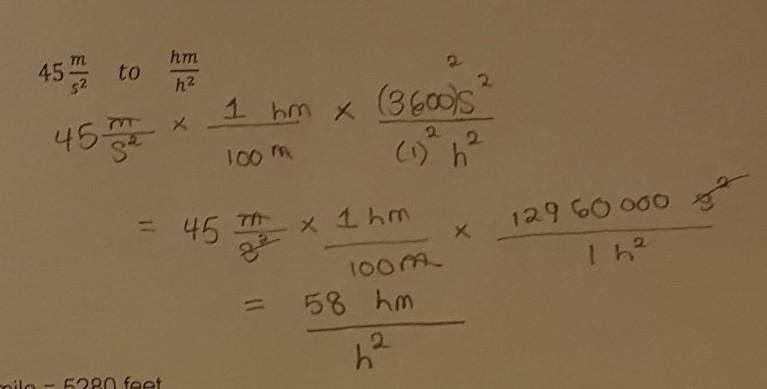 45 m/s² to hm/h²
45 m/s² × 1 hm/100 m × (3600)² s²/(1)² h²
= 45 m/s² × 1 hm/100 m × 12960000 s²/1 h²
= 58 hm/h²
= 5280 feet